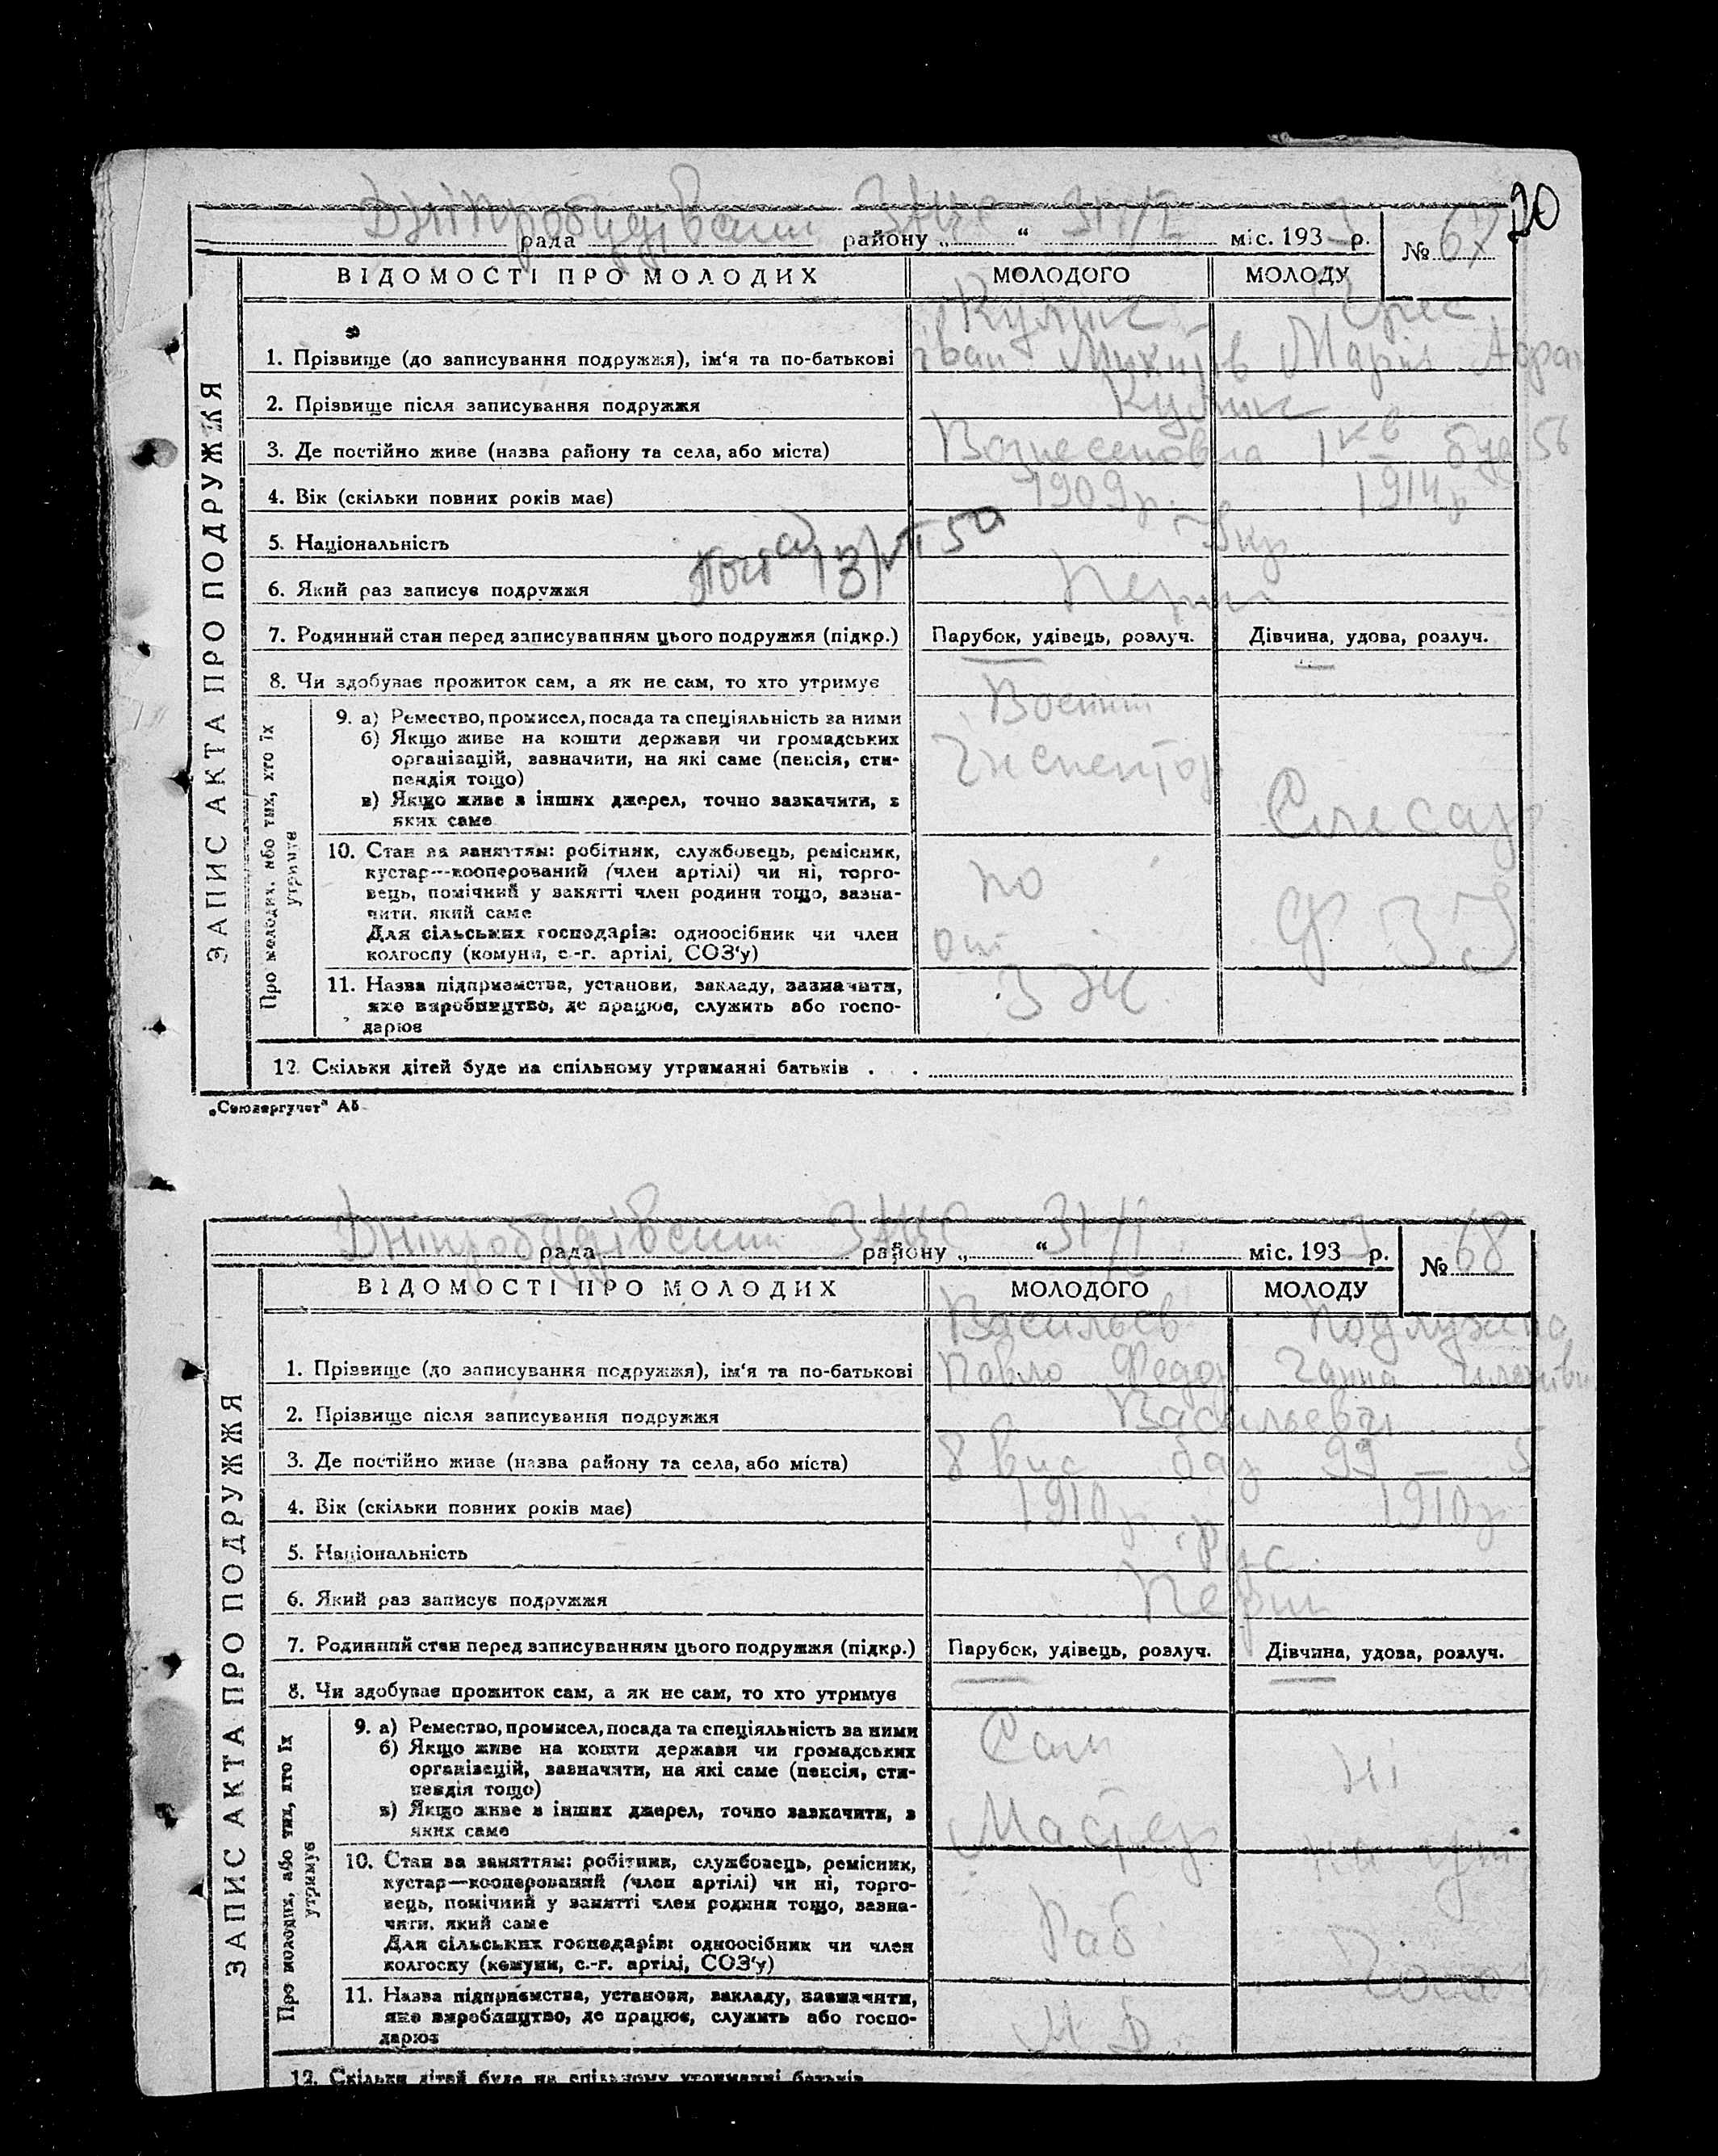 20
Дніпробудівський ЗАГС 31/I 3
рада району „ “ міс. 193 р. № 67
ВІДОМОСТІ ПРО МОЛОДИХ МОЛОДОГО МОЛОДУ
ЗАПИС АКТА ПРО ПОДРУЖЖЯ
Кулик
1. Прізвище (до записування подружжя), ім'я та по-батькові Іван Микитов Марія
2. Прізвище після записування подружжя Кулик
3. Де постійно живе (назва району та села, або міста) Вознесеновка 1 кв буд 56
4. Вік (скільки повних років має) 1909 р. 1914 р
5. Національність Укр
6. Який раз записує подружжя Перш
7. Родинний стан перед записуванням цього подружжя (підкр.) Парубок, удівець, розлуч. Дівчина, удова, розлуч.
8. Чи здобуває прожиток сам, а як не сам, то хто утримує
Про молодих, або тих, хто їх утримує
9. а) Ремество, промисел, посада та спеціяльність за ними
б) Якщо живе на кошти держави чи громадських
організацій, зазначити, на які саме (пенсія, сти-
пендія тощо)
в) Якщо живе з інших джерел, точно зазначити, з
яких саме
Інспектор
Слесар
10. Стан за заняттям: робітник, службовець, ремісник,
кустар—кооперований (член артілі) чи ні, торго-
вець, помічний у занятті член родини тощо, зазна-
чити, який саме
Для сільських господарів: одноосібник чи член
колгоспу (комуни, с.-г. артілі, СОЗ'у)
по
ФЗУ
11. Назва підприємства, установи, закладу, зазначити,
яке виробництво, де працює, служить або госпо-
дарює
12. Скільки дітей буде на спільному утриманні батьків . .
„Союзоргучет“ А5
Дніпробудівський ЗАГС 31/I 3
рада району „ “ міс. 193 р. № 68
ВІДОМОСТІ ПРО МОЛОДИХ МОЛОДОГО МОЛОДУ
ЗАПИС АКТА ПРО ПОДРУЖЖЯ
Васильєв
1. Прізвище (до записування подружжя), ім'я та по-батькові Павло Федор Ганна
2. Прізвище після записування подружжя Васильєви
3. Де постійно живе (назва району та села, або міста) 8 вис бар 99 — 5
4. Вік (скільки повних років має) 1910 р. 1910 р
5. Національність рус
6. Який раз записує подружжя Перш
7. Родинний стан перед записуванням цього подружжя (підкр.) Парубок, удівець, розлуч. Дівчина, удова, розлуч.
8. Чи здобуває прожиток сам, а як не сам, то хто утримує
Про молодих, або тих, хто їх утримує
9. а) Ремество, промисел, посада та спеціяльність за ними
б) Якщо живе на кошти держави чи громадських
організацій, зазначити, на які саме (пенсія, сти-
пендія тощо)
в) Якщо живе з інших джерел, точно зазначити, з
яких саме
Сам Ні
Мастер
10. Стан за заняттям: робітник, службовець, ремісник,
кустар—кооперований (член артілі) чи ні, торго-
вець, помічний у занятті член родини тощо, зазна-
чити, який саме
Для сільських господарів: одноосібник чи член
колгоспу (комуни, с.-г. артілі, СОЗ'у)
Раб
11. Назва підприємства, установи, закладу, зазначити,
яке виробництво, де працює, служить або госпо-
дарює
12. Скільки дітей буде на спільному утриманні батьків